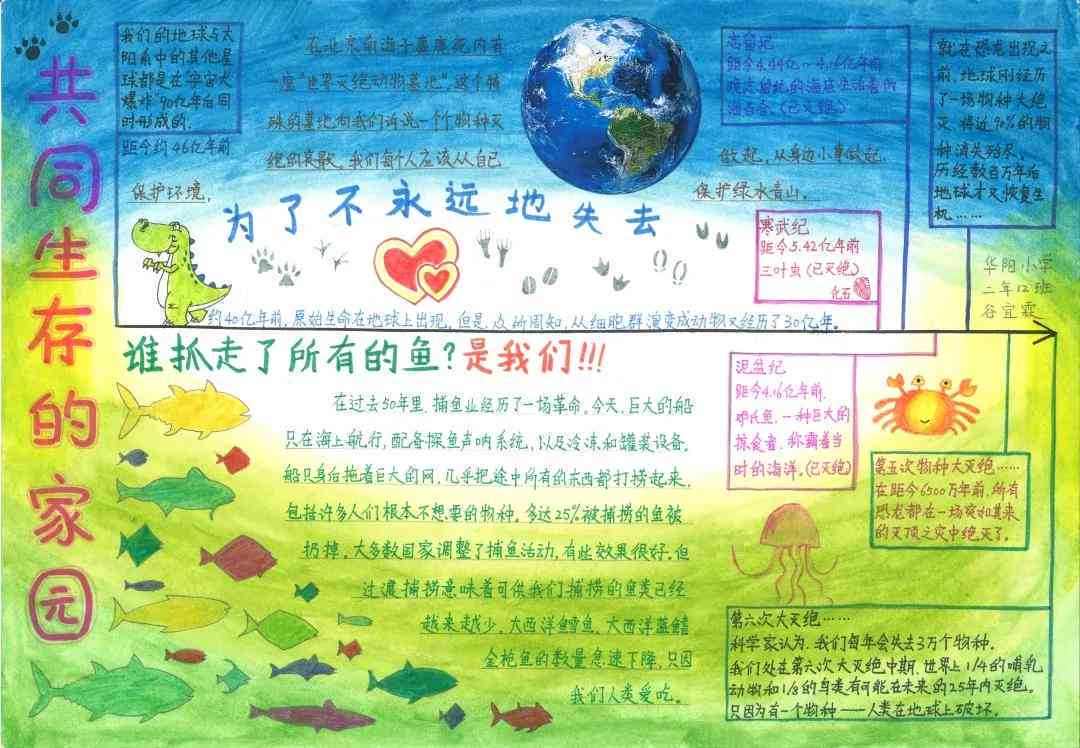 共同生存的家园
我们的地球与太
阳系中的其他星
球都是在宇宙大
爆炸90亿年后同
时形成的.
距今约46亿年前
在北京南海子麋鹿苑内有
一座"世界灭绝动物墓地",这个特
殊的墓地向我们诉说一个个物种灭
绝的哀歌。我们每个人应该从自己
做起,从身边小事做起.
保护环境,
保护绿水青山。
为了不永远地失去
志留纪
距今4.44亿~4.16亿年前
海百合.(已灭绝)
就在恐龙出现之
前,地球刚经历
了一场物种大绝
灭,将近90%的物
种消失殆尽.
历经数百万年后
地球才又恢复生
机……
寒武纪
距今5.42亿年前
三叶虫(已灭绝)
化石
华阳小学
二年12班
谷宜霖
约40亿年前,原始生命在地球上出现,但是众所周知,从细胞群演变成动物又经历了30亿年。
谁抓走了所有的鱼?是我们!!!
在过去50年里,捕鱼业经历了一场革命。今天,巨大的船
只在海上航行,配备探鱼声呐系统,以及冷冻和罐装设备。
船只身后拖着巨大的网,几乎把途中所有的东西都打捞起来,
包括许多人们根本不想要的物种。多达25%被捕捞的鱼被
扔掉。大多数国家调整了捕鱼活动,有些效果很好,但
过渡捕捞意味着可供我们捕捞的鱼类已经
越来越少。大西洋鳕鱼、大西洋蓝鳍
金枪鱼的数量急速下降,只因
我们人类爱吃。
泥盆纪
距今4.16亿年前.
邓氏鱼,一种巨大的
掠食者,称霸着当
时的海洋。(已灭绝)
第五次物种大灭绝……
在距今6500万年前,所有
恐龙都在一场突如其来
的灭顶之灾中绝灭了。
第六次大灭绝……
科学家认为,我们每年会失去3万个物种。
我们处在第六次大灭绝中期,世界上1/4的哺乳
动物和1/8的鸟类有可能在未来的25年内灭绝。
只因为有一个物种——人类在地球上破坏。